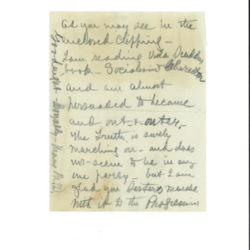 as you may see by the
enclosed clipping —
I am reading Vida Scudder
book — Socialism & Character
and am almost
persuaded to become
and out & outer.
The Truth is surely
marching on — and does
not seem to be in any
one party — but I am
glad you
with it to the Progressives